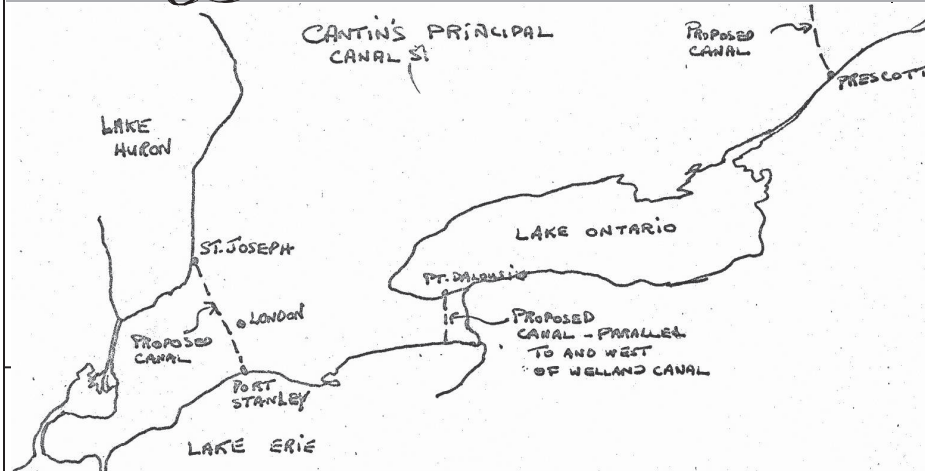 CANTIN'S PRINCIPAL
CANALS.
PROPOSED
CANAL
PRESCOTT
LAKE
HURON
LAKE ONTARIO
ST. JOSEPH
PT. DALOUSIE
LONDON
PROPOSED
CANAL
PROPOSED
CANAL - PARALLEL
TO AND WEST
OF WELLAND CANAL
PORT
STANLEY
LAKE ERIE